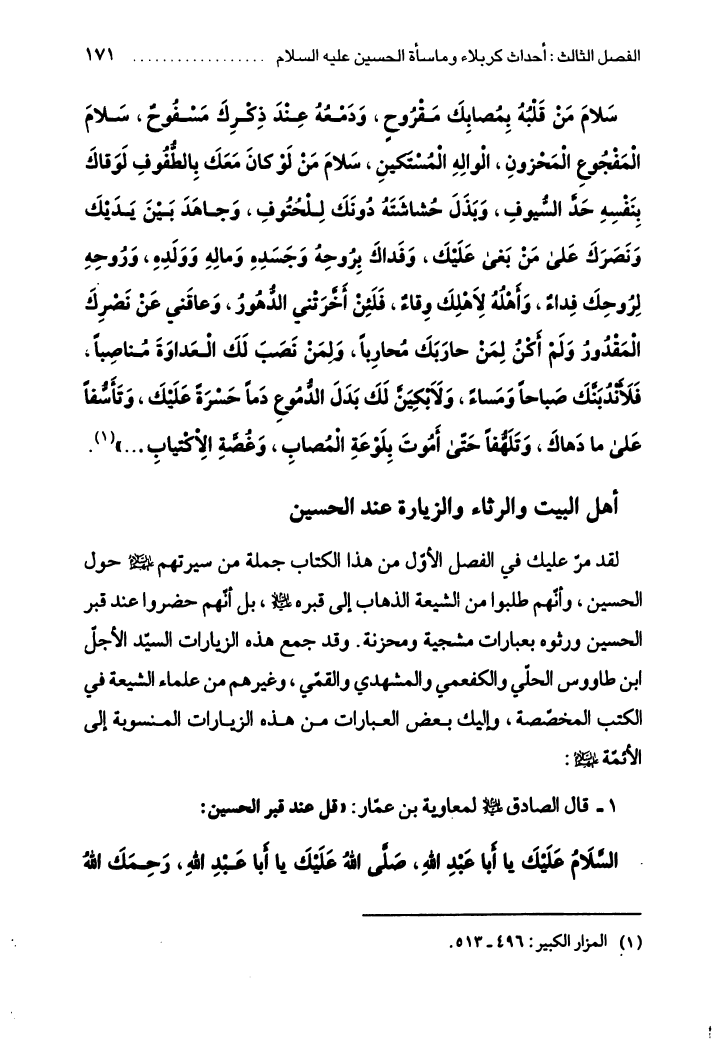 الفصل الثالث: أحداث كربلاء وماسأة الحسين عليه السلام .................. ١٧١
سَلامَ مَنْ قَلْبُهُ بِمُصابِكَ مَقْروحٍ، وَدَمْعُهُ عِنْدَ ذِكْرِكَ مَسْفُوحٌ، سَلامَ
الْمَفْجُوعِ الْمَحْزونِ، الْوالِهِ الْمُسْتَكينِ، سَلامَ مَنْ لَوْ كانَ مَعَكَ بِالطُّفُوفِ لَوَقاكَ
بِنَفْسِهِ حَدَّ السُّيوفِ، وَبَذَلَ حُشاشَتَهُ دُونَكَ لِلْحُتوفِ، وَجاهَدَ بَيْنَ يَدَيْكَ
وَنَصَرَكَ عَلىٰ مَنْ بَغىٰ عَلَيْكَ، وَفَداكَ بِرُوحِهُ وَجَسَدِهِ وَمالِهِ وَوَلَدِهِ، وَرُوحِهِ
لِرُوحِكَ فِداءٌ، وَأَهْلُهُ لِاَهْلِكَ وِقاءٌ، فَلَئِنْ أَخَّرَتْني الدُّهُورُ، وَعاقَني عَنْ نَصْرِكَ
الْمَقْدُورُ وَلَمْ أَكُنْ لِمَنْ حارَبَكَ مُحارِباً، وَلِمَنْ نَصَبَ لَكَ الْعَداوَةَ مُناصِباً،
فَلَأَنْدُبَنَّكَ صَباحاً وَمَساءً، وَلَاَبْكِيَنَّ لَكَ بَدَلَ الدُّمُوعِ دَماً حَسْرَةً عَلَيْكَ، وَتَأَسُّفاً
عَلىٰ ما دَهاكَ، وَتَلَهُّفاً حَتّىٰ أَمُوتَ بِلَوْعَةِ الْمُصابِ، وَغُصَّةِ الِاكْتِيابِ...»(١).
أهل البيت والرثاء والزيارة عند الحسين
لقد مرّ عليك في الفصل الأوّل من هذا الكتاب جملة من سيرتهم ﷺ حول
الحسين، وأنّهم طلبوا من الشيعة الذهاب إلى قبره ﷺ، بل أنّهم حضروا عند قبر
الحسين ورثوه بعبارات مشجية ومحزنة. وقد جمع هذه الزيارات السيّد الأجلّ
ابن طاووس الحلّي والكفعمي والمشهدي والقمّي، وغيرهم من علماء الشيعة في
الكتب المخصّصة، وإليك بعض العبارات من هذه الزيارات المنسوبة إلى
الأئمّة ﷺ:
١ ـ قال الصادق ﷺ لمعاوية بن عمّار: «قل عند قبر الحسين:
السَّلَامُ عَلَيْكَ يا أَبا عَبْدِ اللهِ، صَلَّى اللهُ عَلَيْكَ يا أَبا عَبْدِ اللهِ، رَحِمَكَ اللهُ
(١) المزار الكبير: ٤٩٦ ـ ٥١٣.